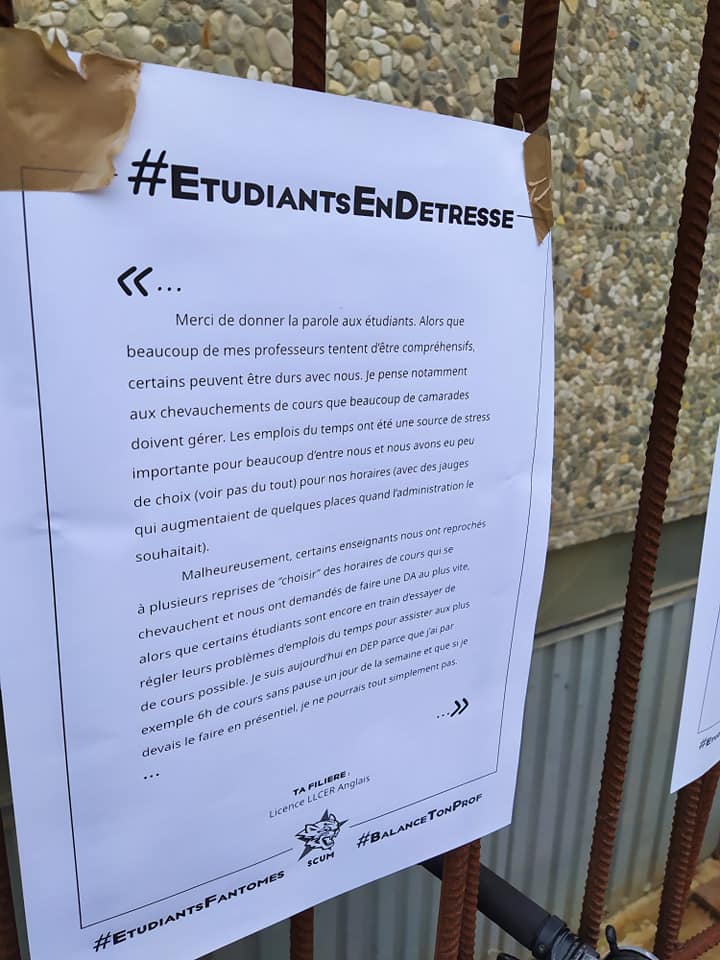 #EtudiantsEnDetresse
«...
Merci de donner la parole aux étudiants. Alors que
beaucoup de mes professeurs tentent d'être compréhensifs,
certains peuvent être durs avec nous. Je pense notamment
aux chevauchements de cours que beaucoup de camarades
doivent gérer. Les emplois du temps ont été une source de stress
importante pour beaucoup d'entre nous et nous avons eu peu
de choix (voir pas du tout) pour nos horaires (avec des jauges
qui augmentaient de quelques places quand l'administration le
souhaitait).
Malheureusement, certains enseignants nous ont reprochés
à plusieurs reprises de "choisir" des horaires de cours qui se
chevauchent et nous ont demandés de faire une DA au plus vite,
alors que certains étudiants sont encore en train d'essayer de
régler leurs problèmes d'emplois du temps pour assister aux plus
de cours possible. Je suis aujourd'hui en DEP parce que j'ai par
exemple 6h de cours sans pause un jour de la semaine et que si je
devais le faire en présentiel, je ne pourrais tout simplement pas.
...»
...
TA FILIERE :
Licence LLCER Anglais
SCUM
#EtudiantsFantomes
#BalanceTonProf